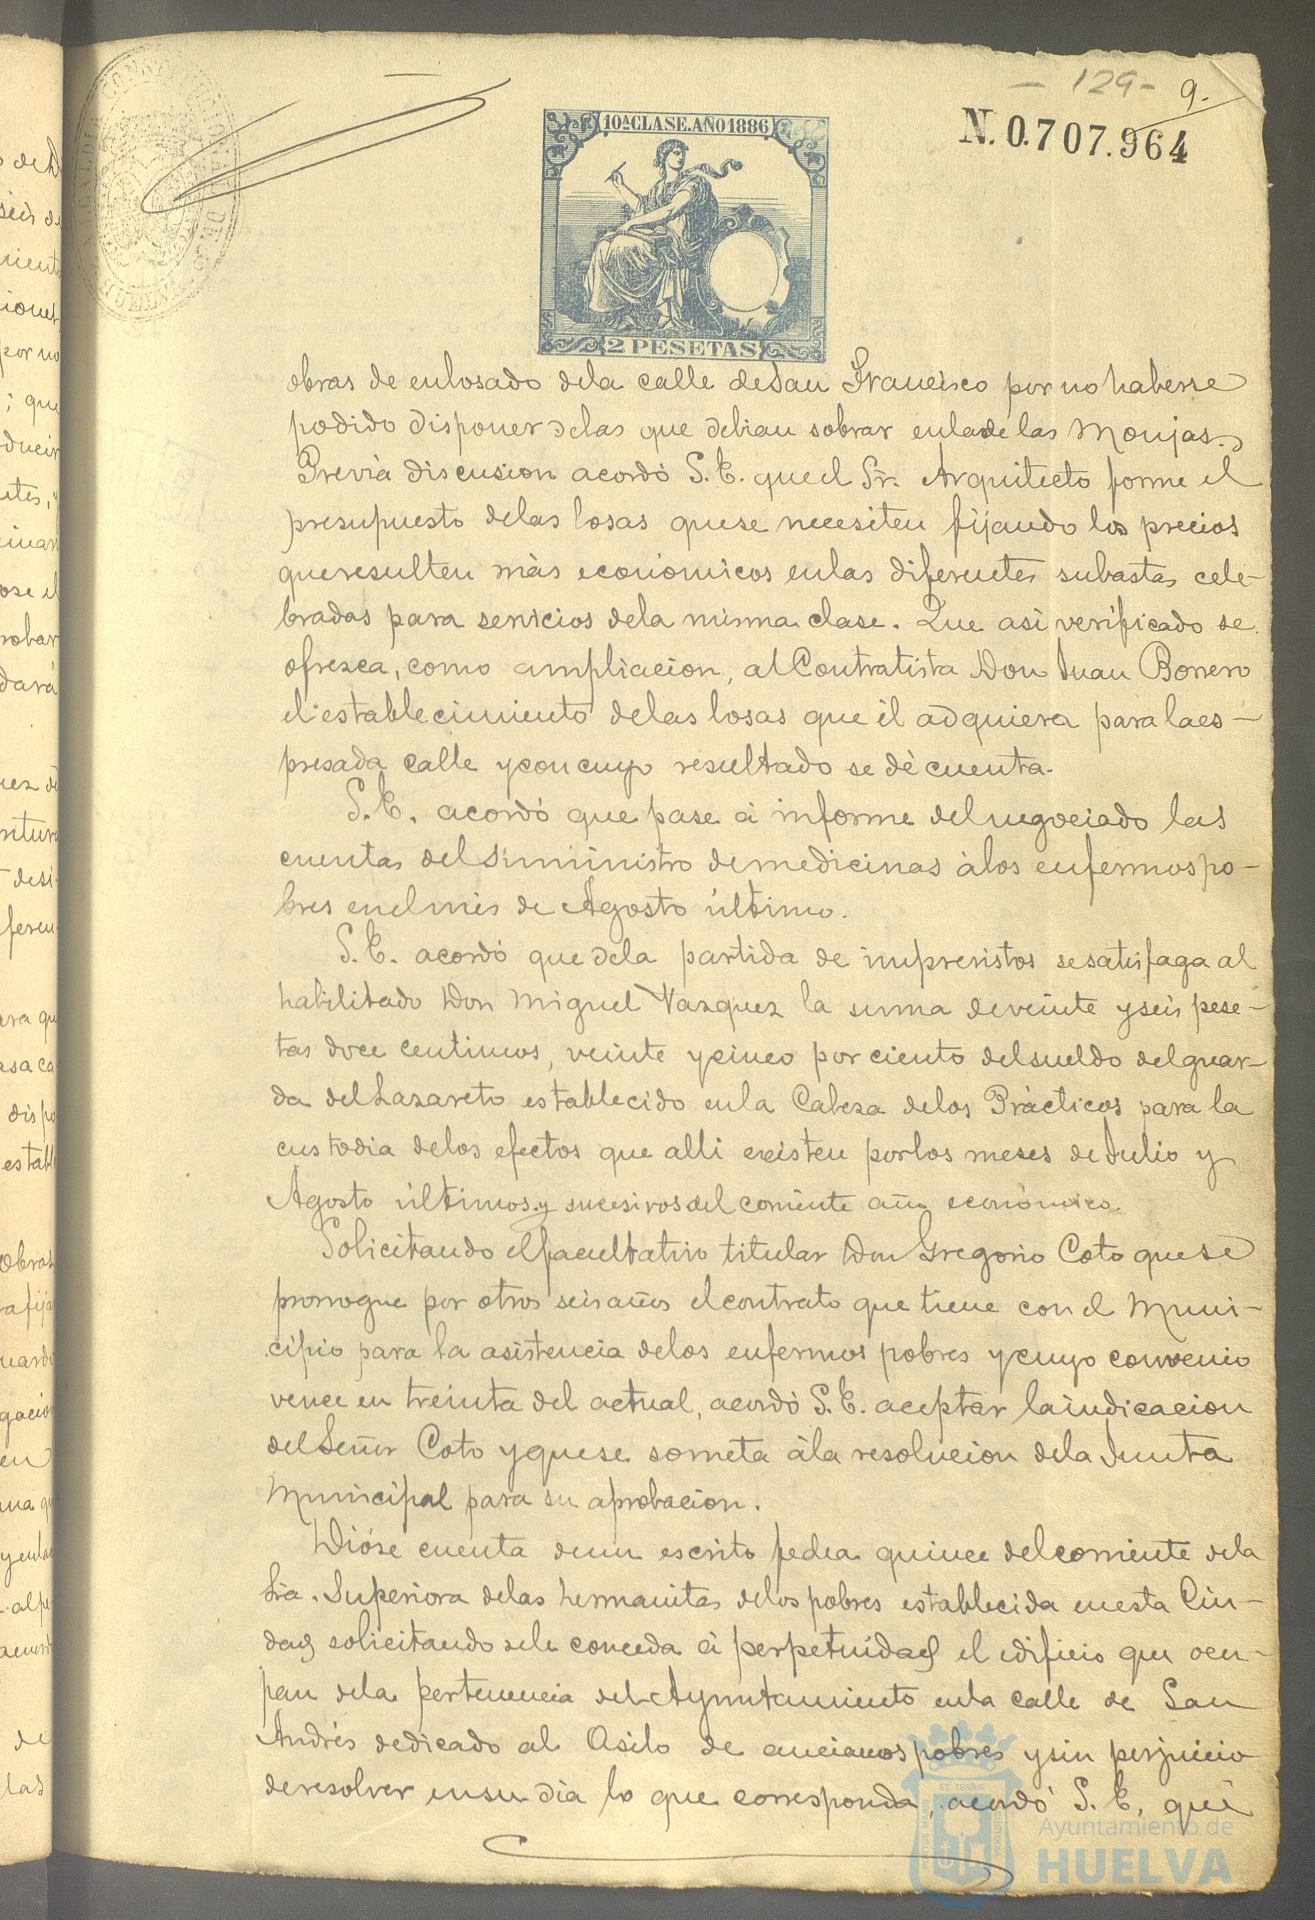 - 129 -
9.
N. 0.707.964
10ª CLASE. AÑO 1886
2 PESETAS
obras de enlosado dela calle de San Francisco por no haberse
podido disponer delas que debian sobrar enla de las Monjas.
Prévia discusion acordó S. E. que el Sr. Arquitecto forme el
presupuesto delas losas que se necesiten fijando los precios
que resulten màs económicos enlas diferentes subastas cele-
bradas para servicios dela misma clase. Que asi verificado se
ofrezca, como ampliacion, al Contratista Don Juan Borrero
el establecimiento delas losas que èl adquiera para la es-
presada calle y con cuyo resultado se dè cuenta.
S. E. acordó que pase à informe del negociado las
cuentas del suministro de medicinas à los enfermos po-
bres en el mes de Agosto último.
S. E. acordó que dela partida de imprevistos se satisfaga al
habilitado Don Miguel Vazquez la suma de veinte y seis pese-
tas doce centimos, veinte y cinco por ciento del sueldo del guar-
da del Lazareto establecido enla Cabeza delos Prácticos para la
custodia delos efectos que alli existen por los meses de Julio y
Agosto últimos y sucesivos del corriente año económico.
Solicitando el facultativo titular Don Gregorio Coto que se
prorrogue por otros seis años el contrato que tiene con el Muni-
cipio para la asistencia delos enfermos pobres y cuyo convenio
vence en treinta del actual, acordó S. E. aceptar la indicacion
del Señor Coto y que se someta àla resolucion dela Junta
Municipal para su aprobacion.
Dióse cuenta de un escrito fecha quince del corriente dela
Sra. Superiora delas hermanitas delos pobres establecida en esta Ciu-
dad solicitando se le conceda à perpetuidad el edificio que ocu-
pan dela pertenencia del Ayuntamiento enla calle de San
Andrés dedicado al Asilo de ancianos pobres y sin perjuicio
de resolver en su dia lo que corresponda, acordó S. E. que
Ayuntamiento de
HUELVA